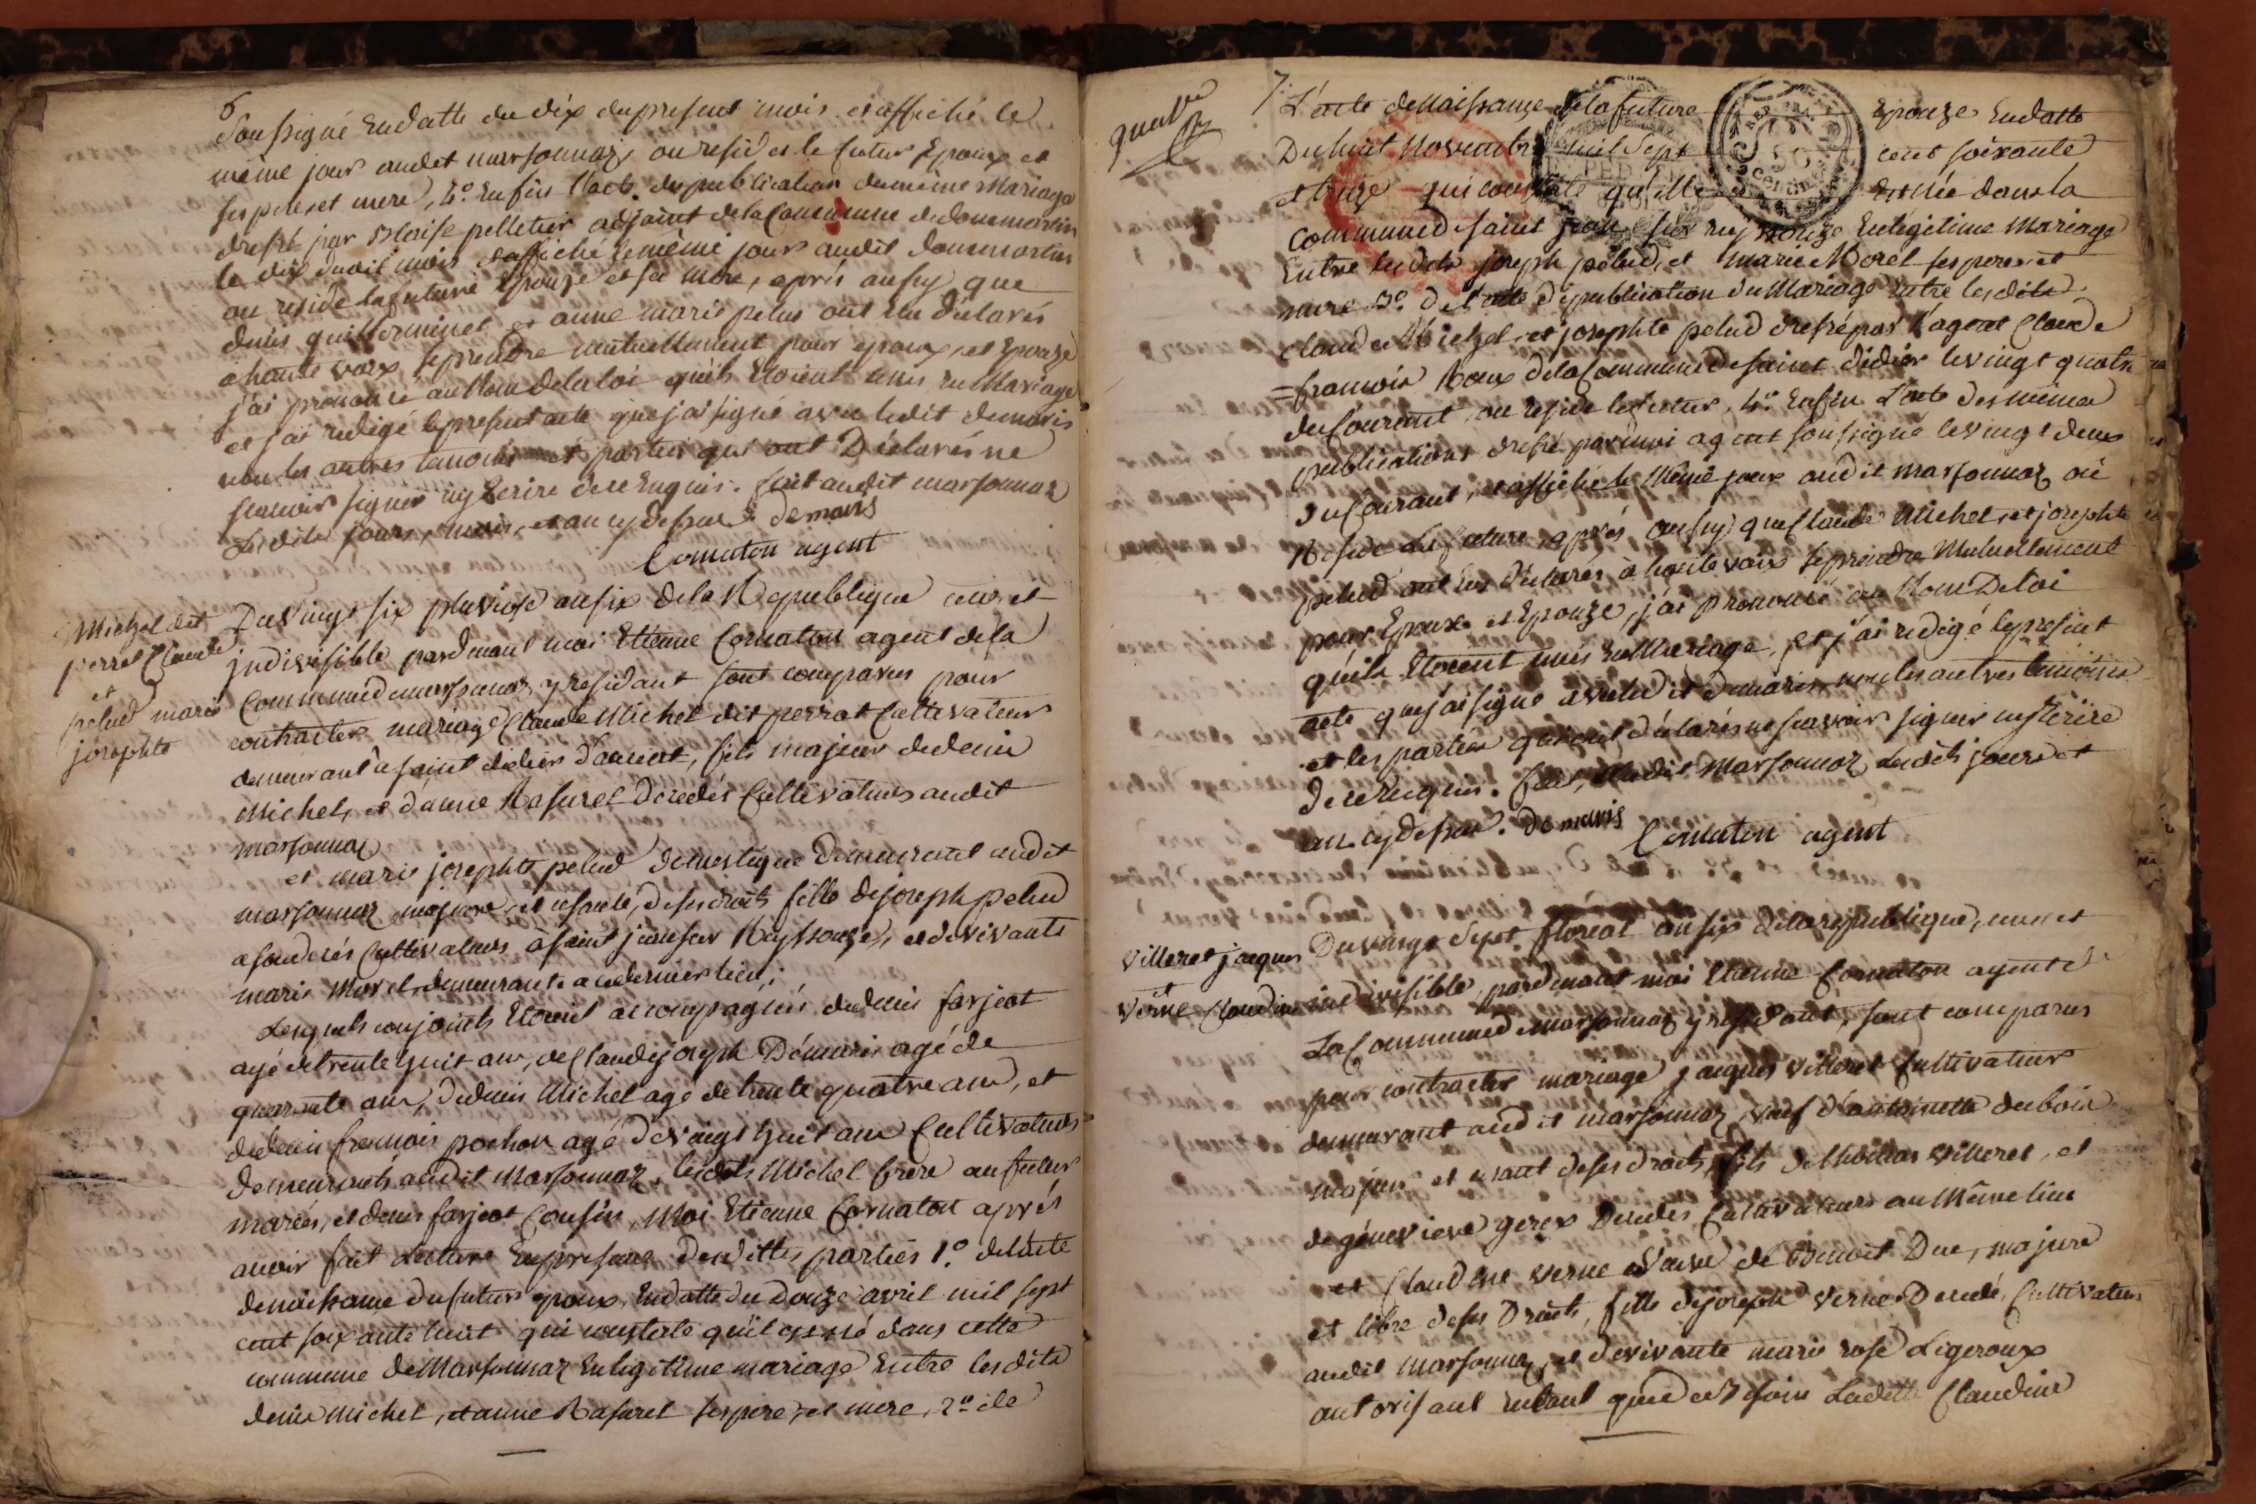 6
soussigné en datte du dix du present mois et affiché le
même jour audit marsonnaz, ou reside le futur Epoux et
ses pere et mere, 4.º enfin l'acte de publication du même Mariage
dressé par Blaise pelletier adjoint de la Commune de dommartin
le dix dudit mois et affiché le même jour audit dommartin
ou reside la future Epouze et sa mere, aprés aussy que
denis guillerminet et anne marie pelus ont eu déclarés
a haute voix se prendre mutuellement pour epoux, et Epouze
j'ai prononcé au Nom de la loi qu'ils Etoient unis en Mariage
et j'ai redigé le present acte que j'ai signé avec ledit demaris
non les autres temoins et parties qui ont Déclarés ne
scavoir signer ny Ecrire de ce Enquis. fait audit marsonnaz
Lesdits jours, mois, et an cy dessus. demaris
Cornaton agent
Michel dit
perrat Claude
et
pelud marie
josephte
Du Vingt six pluviose an six de la Republique une et
indivisible pardevant moi Etienne Cornaton agent de la
Commune de marsonnaz y residant sont comparus pour
contracter mariage Claude Michel dit perrat Cultivateur
demeurant a saint didier d'aussiat, fils majeur de denis
Michel, et d'anne Rasurel Décedés Cultivateurs audit
marsonnaz
et marie josephte pelud domestique Demeurant audit
marsonnaz majeure et usante de ses droits fille de joseph pelud
a son decés Cultivateur à saint jean sur Reyssouze, et de vivante
marie Morel demeurante a ce dernier lieu;
Lesquels conjoints Etoient accompagnés de denis farjeot
agé de trente huit ans, de Claude joseph Démaris agé de
quarante ans, de denis Michel agé de trente quatre ans, et
de denis françois pochon agé de vingt huit ans Cultivateurs
Demeurants audit Marsonnaz, ledit Michel frere au futur
mariés, et denis farjeot Cousin, Moi Etienne Cornaton aprés
avoir fait Lecture En presence Desdittes parties 1.º de l'acte
de naissance du futur epoux, En datte du Douze avril mil sept
cent soixante huit qui constate qu'il est né dans cette
commune de Marsonnaz En legitime mariage Entre lesdits
denis Michel, et anne Rasurel ses pere, et mere, 2.º de
7
L'acte de Naissance de la future Epouze En datte
Du huit Novembre mil sept cent soixante
et onze qui constate qu'elle est Née dans la
Commune de saint jean sur reyssouze En légitime Mariage
Entre lesdits joseph pelud, et marie Morel ses pere et
mere 3.º de l'acte de publication du Mariage entre lesdits
Claude Michel, et josephte pelud dressé par l'agent Claude
françois Roux de la Commune de saint didier le vingt quatre
du Courant, ou reside le futur, 4.º Enfin L'acte des mêmes
publications dressé par moi agent soussigné le vingt deux
du Courant, et affiché le Même jour audit marsonnaz où
Reside la future aprés aussy que Claude Michel, et josephte
pelud ont eu déclarés a haute voix se prendre Mutuellement
pour Epoux et Epouze, j'ai prononcé au Nom De la loi
qu'ils Etoient unis en Mariage, et j'ai redigé le present
acte que j'ai signé avec ledit demaris non les autres temoins
et les parties qui ont déclarés ne scavoir signer ny Ecrire
de ce Enquis. fait, Audit Marsonnaz Lesdits jours et
an cy dessus. demaris
Cornaton agent
villeret jacques
et
verne Claudine
Du vingt sept floreal an six de la republique, une et
indivisible, pardevant moi Etienne Cornaton agent de
La Commune de Marsonnaz y residant, sont comparus
pour contracter mariage jacques villeret Cultivateur
demeurant audit marsonnaz, veuf d'antoinette dubois
majeur et usant de ses droits, fils de villeret, et
de génevieve gerex Decedés Cultivateurs au Même lieu
et Claudine verne Veuve de Benoit Duc, majeure
et libre de ses Droits, fille de joseph verne Decedé, Cultivateur
audit marsonnaz, et de vivante marie rose Ligeroux
autorisant entant que de besoin Ladite Claudine